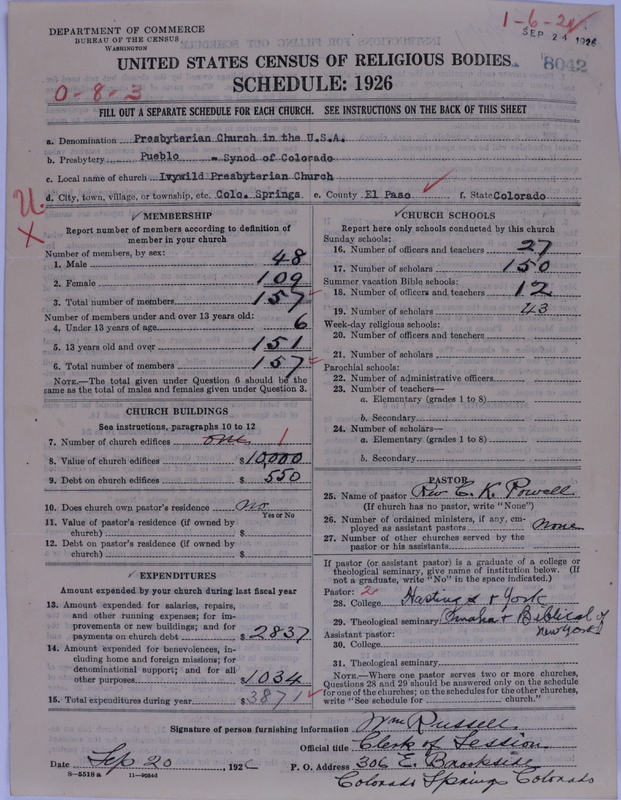 DEPARTMENT OF COMMERCE
BUREAU OF THE CENSUS
WASHINGTON
1-6-24
SEP 24 1926
8042
UNITED STATES CENSUS OF RELIGIOUS BODIES
SCHEDULE: 1926
0-8-3
FILL OUT A SEPARATE SCHEDULE FOR EACH CHURCH. SEE INSTRUCTIONS ON THE BACK OF THIS SHEET
a. Denomination Presbyterian Church in the U.S.A.
b. Presbytery Pueblo - Synod of Colorado
c. Local name of church Ivywild Presbyterian Church
d. City, town, village, or township, etc. Colo. Springs e. County El Paso f. State Colorado
U.
X
MEMBERSHIP
Report number of members according to definition of
member in your church
Number of members, by sex:
1. Male 48
2. Female 109
3. Total number of members 157
Number of members under and over 13 years old:
4. Under 13 years of age 6
5. 13 years old and over 151
6. Total number of members 157
NOTE.—The total given under Question 6 should be the
same as the total of males and females given under Question 3.
CHURCH BUILDINGS
See instructions, paragraphs 10 to 12
7. Number of church edifices one 1
8. Value of church edifices $10,000
9. Debt on church edifices $ 550
10. Does church own pastor's residence no
Yes or No
11. Value of pastor's residence (if owned by
church) $
12. Debt on pastor's residence (if owned by
church) $
EXPENDITURES
Amount expended by your church during last fiscal year
13. Amount expended for salaries, repairs,
and other running expenses; for im-
provements or new buildings; and for
payments on church debt $ 2837
14. Amount expended for benevolences, in-
cluding home and foreign missions; for
denominational support; and for all
other purposes $ 1034
15. Total expenditures during year $ 3871
CHURCH SCHOOLS
Report here only schools conducted by this church
Sunday schools:
16. Number of officers and teachers 27
17. Number of scholars 150
Summer vacation Bible schools:
18. Number of officers and teachers 12
19. Number of scholars 43
Week-day religious schools:
20. Number of officers and teachers
21. Number of scholars
Parochial schools:
22. Number of administrative officers
23. Number of teachers—
a. Elementary (grades 1 to 8)
b. Secondary
24. Number of scholars—
a. Elementary (grades 1 to 8)
b. Secondary
PASTOR
25. Name of pastor Rev C. K. Powell
(If church has no pastor, write "None")
26. Number of ordained ministers, if any, em-
ployed as assistant pastors None
27. Number of other churches served by the
pastor or his assistants
If pastor (or assistant pastor) is a graduate of a college or
theological seminary, give name of institution below. (If
not a graduate, write "No" in the space indicated.)
Pastor: 2
28. College Hastings & York
29. Theological seminary Omaha & Biblical of
New York
Assistant pastor:
30. College
31. Theological seminary
NOTE.—Where one pastor serves two or more churches,
Questions 28 and 29 should be answered only on the schedule
for one of the churches; on the schedules for the other churches,
write "See schedule for church."
Signature of person furnishing information Wm Russell
Official title Clerk of Session
Date Sep 20, 1926 P. O. Address 306 E. Brookside
8-5518 a 11-9054d
Colorado Springs Colorado